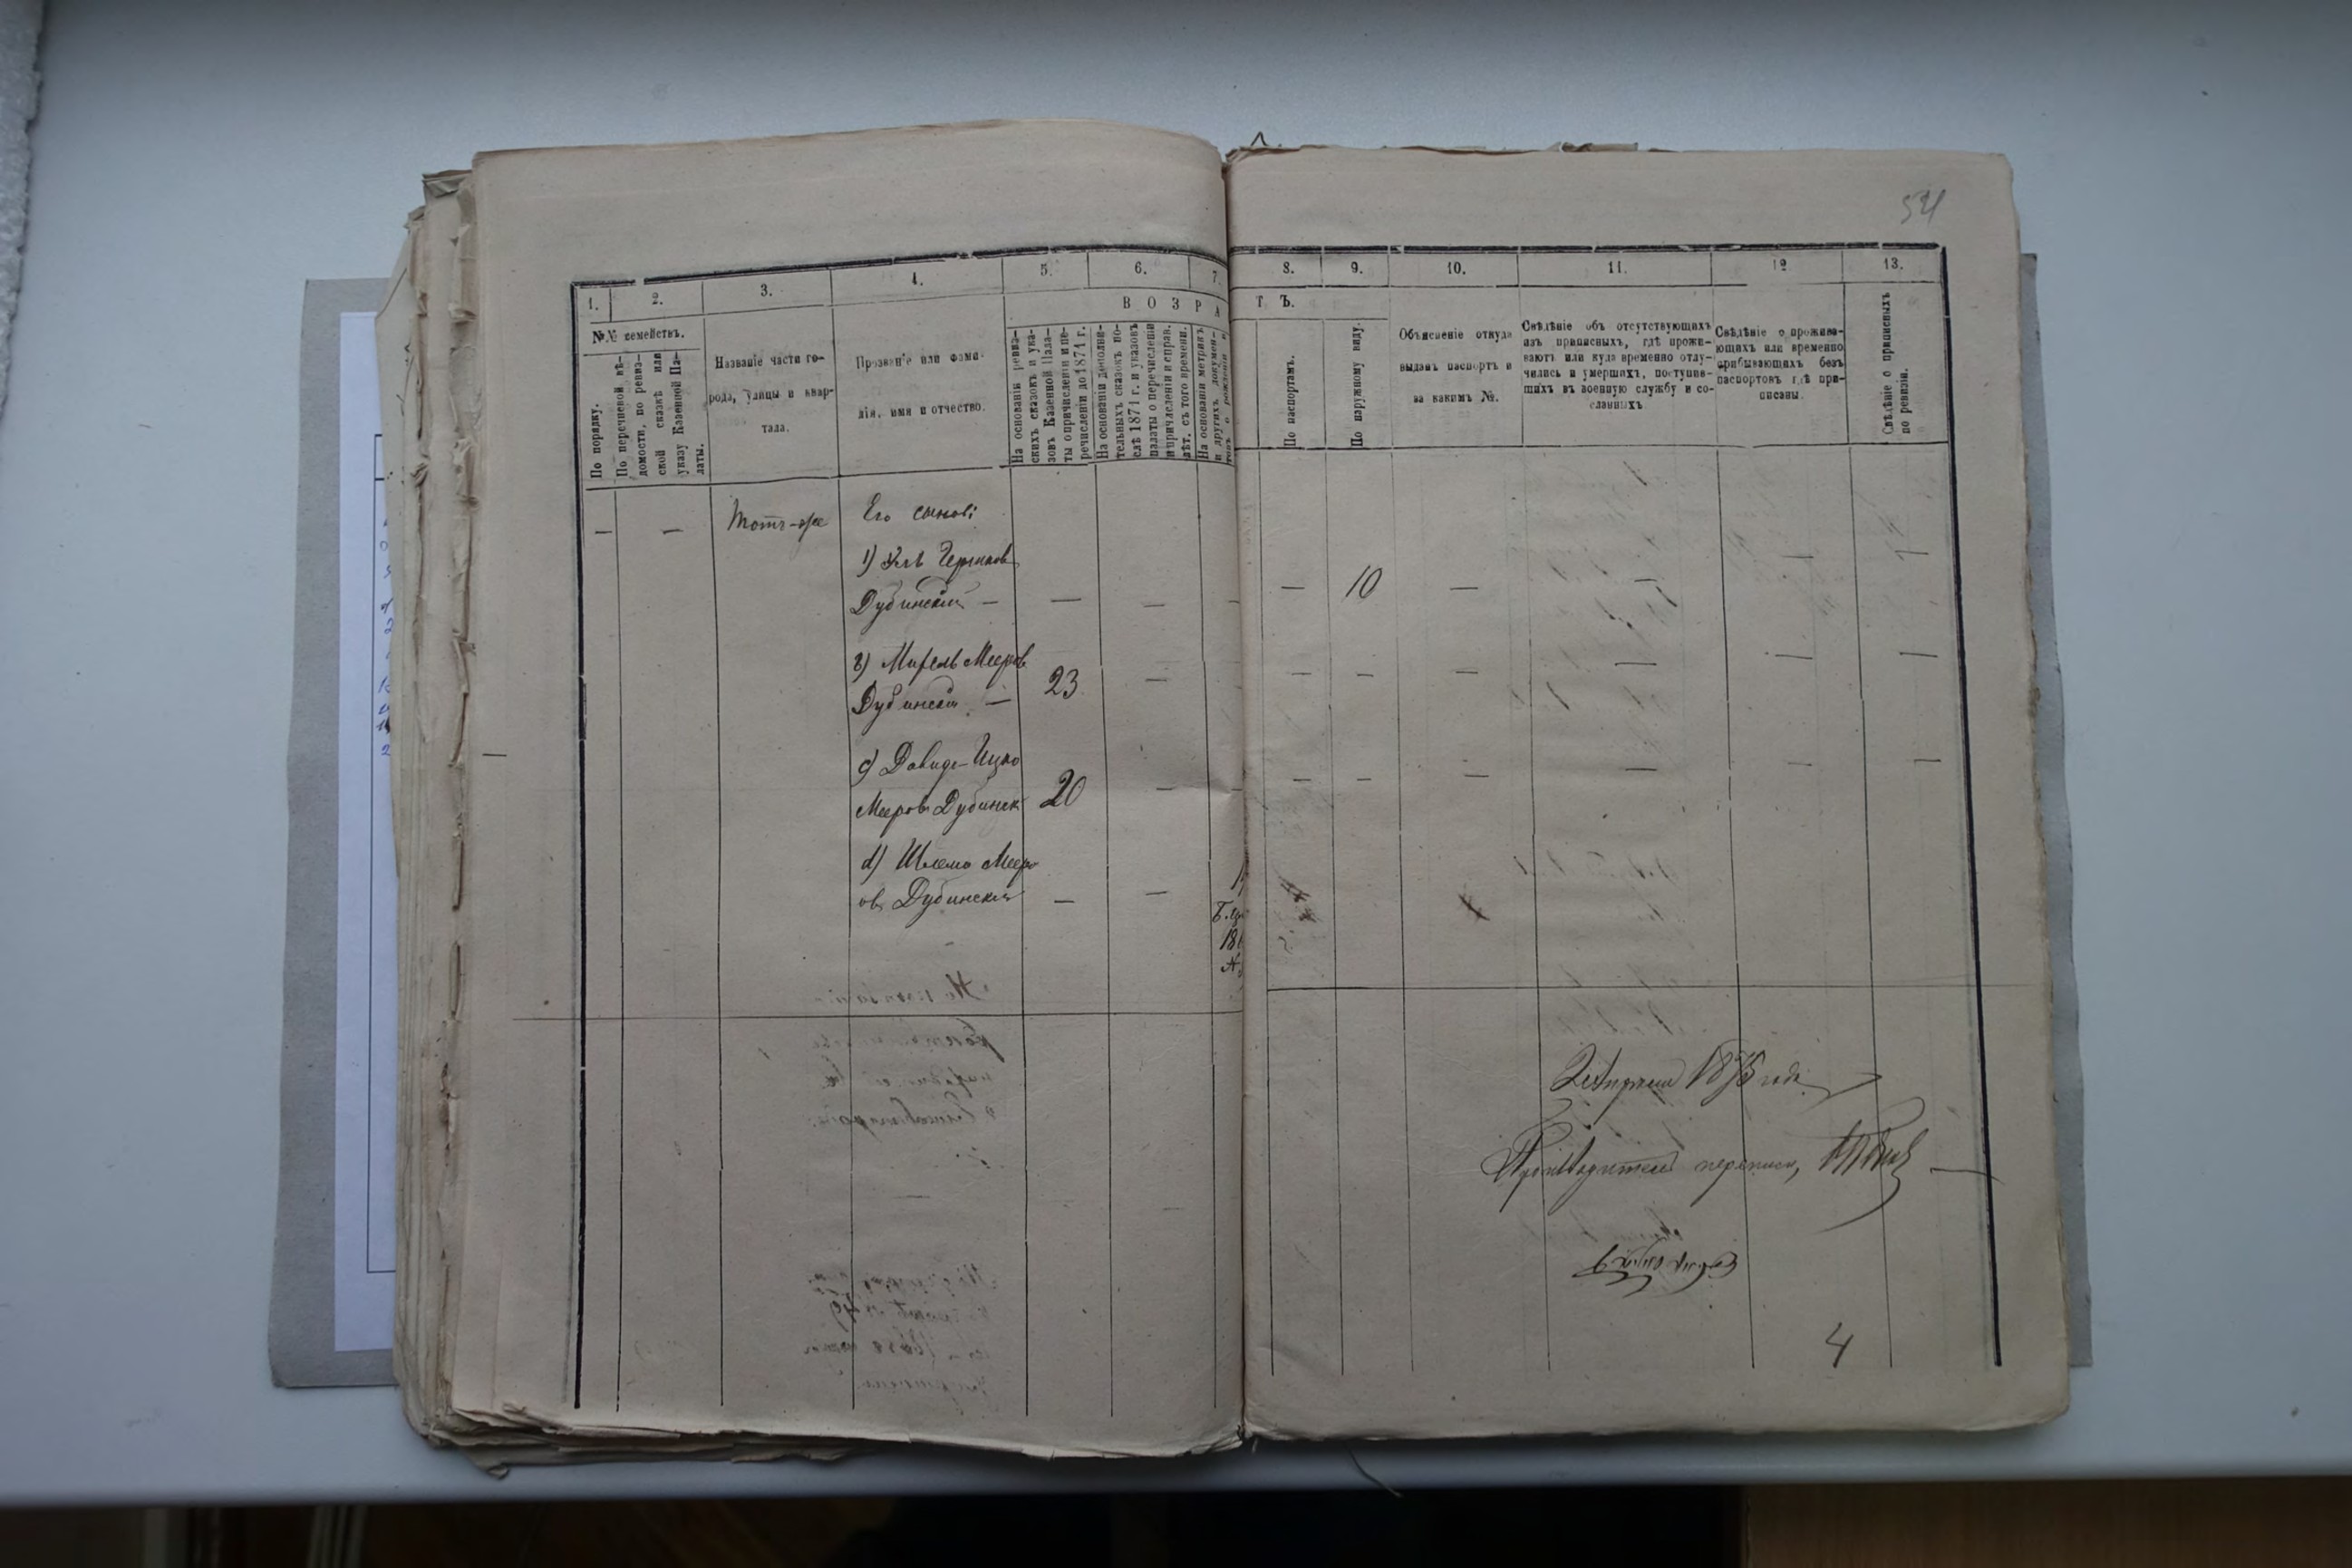 54
1.
2.
3.
4.
5.
6.
7.
8.
9.
10.
11.
12
13.
№№ семействъ.
По порядку.
По перечневой вѣ-
домости, по ревиз-
ской сказкѣ или
указу Казенной Па-
латы.
Названіе части го-
рода, улицы и квар-
тала.
Прозваніе или фами-
лія, имя и отчество.
ВОЗРА
На основаніи ревиз-
скихъ сказокъ и ука-
зовъ Казенной Пала-
ты о причисленіи и пе-
речисленіи до 1871 г.
На основаніи дополни-
тельныхъ сказокъ по-
слѣ 1871 г. и указовъ
палаты о перечисленіи
и причисленіи и справ.
лѣт. съ того времени.
На основаніи метрикъ
и другихъ докумен-
товъ о рожденіи и
ТЪ.
По паспортамъ.
По наружному виду.
Объясненіе откуда
выданъ паспортъ и
за какимъ №.
Свѣдѣніе объ отсутствующихъ
изъ приписныхъ, гдѣ прожи-
ваютъ или куда временно отлу-
чились и умершихъ, поступив-
шихъ въ военную службу и со-
сланныхъ.
Свѣдѣніе о прожива-
ющихъ или временно
прибывающихъ безъ
паспортовъ гдѣ при-
писаны.
Свѣдѣніе о приписныхъ
по ревизіи.
— — Тотъ-же Его сынові
1)
Дубинскій — — — — — 10 — — — —
в) Мееров
Дубинскій — 23 — — — — — — — —
с) Давидъ-Ицко
Мееровъ Дубинск 20 — — — — — — —
d) Шлема Меер
овъ Дубинскій — —
18
1875 года
Производитель переписи,
4